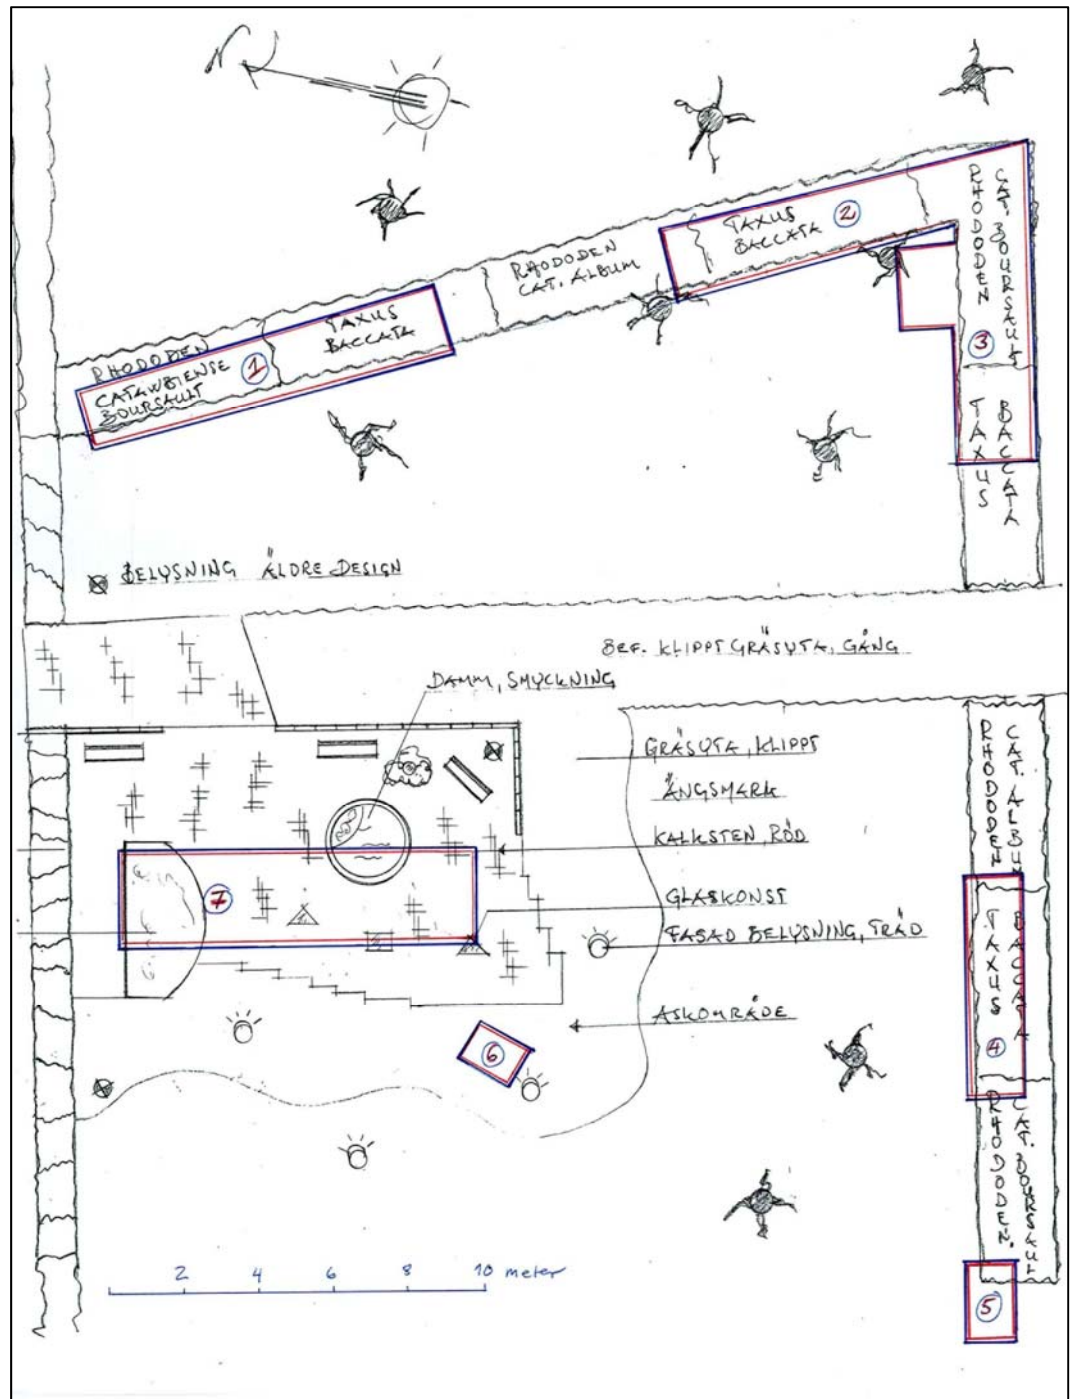 N
RHODODEN
CATAWBIENSE
BOURSAULT
1
TAXUS
BACCATA
RHODODEN
CAT. ALBUM
TAXUS
BACCATA
2
RHODODEN
CAT. BOURSAULT
3
TAXUS
BACCATA
BELYSNING ÄLDRE DESIGN
BEF. KLIPPT GRÄSYTA, GÅNG
DAMM, SMYCKNING
GRÄSYTA, KLIPPT
ÄNGSMARK
KALKSTEN, RÖD
GLASKONST
FASAD BELYSNING, TRÄD
ASKOMRÅDE
RHODODEN
CAT. ALBUM
TAXUS
BACCATA
4
RHODODEN.
CAT. BOURSAULT
5
6
7
2 4 6 8 10 meter